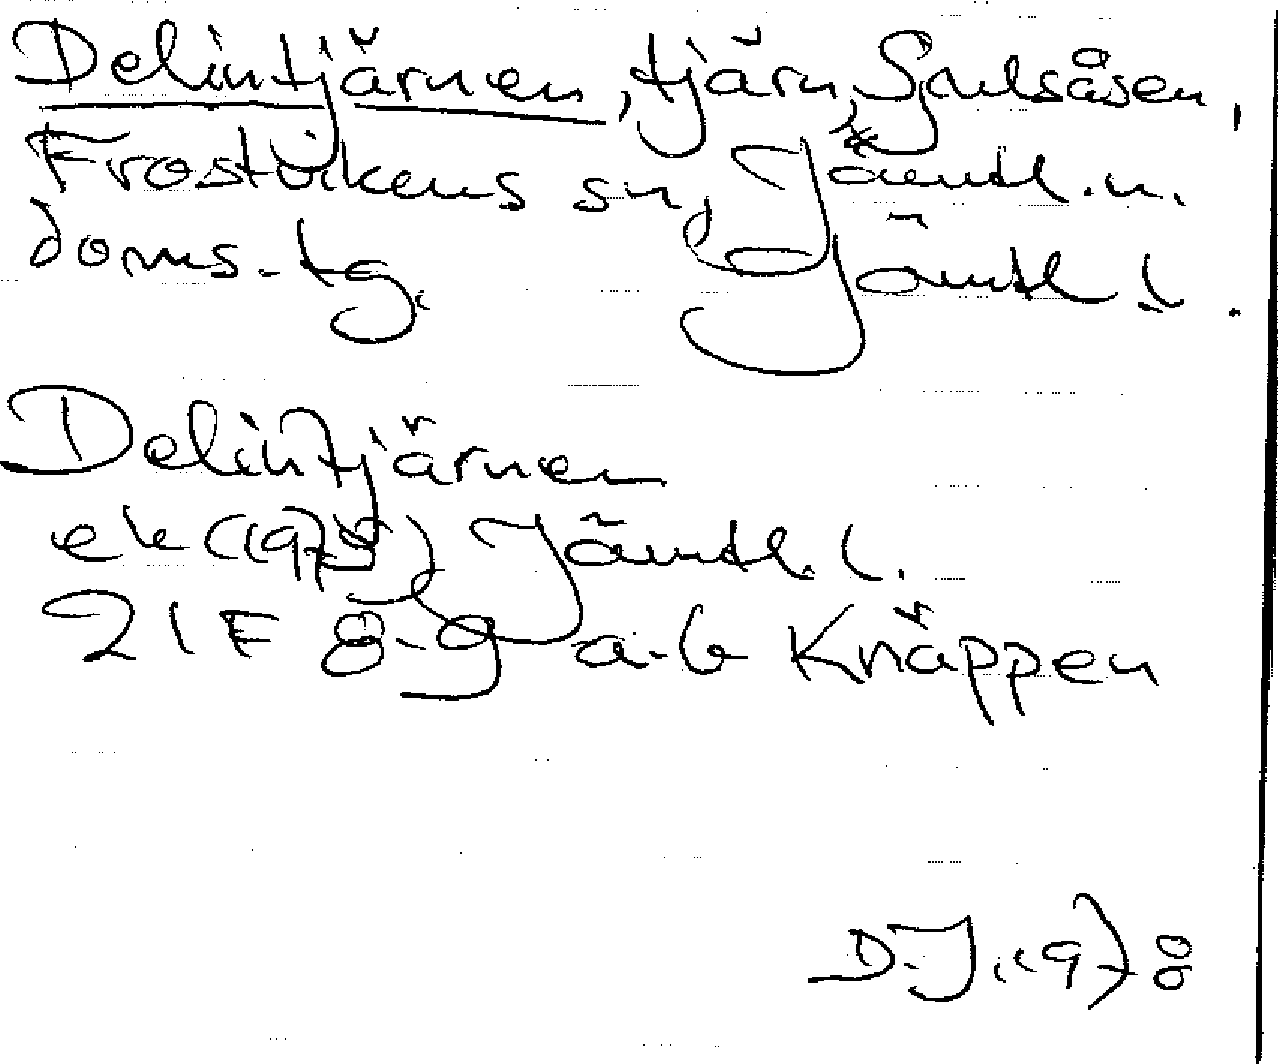 Delintjärnen, tjärn, Sjulsåsen,
Frostvikens sn, Jämtl. n.
doms. tg. Jämtl. l.
Delintjärnen
ek (1975) Jämtl. l.
21F 8-9 a-b Knäppen
D.J. 1978